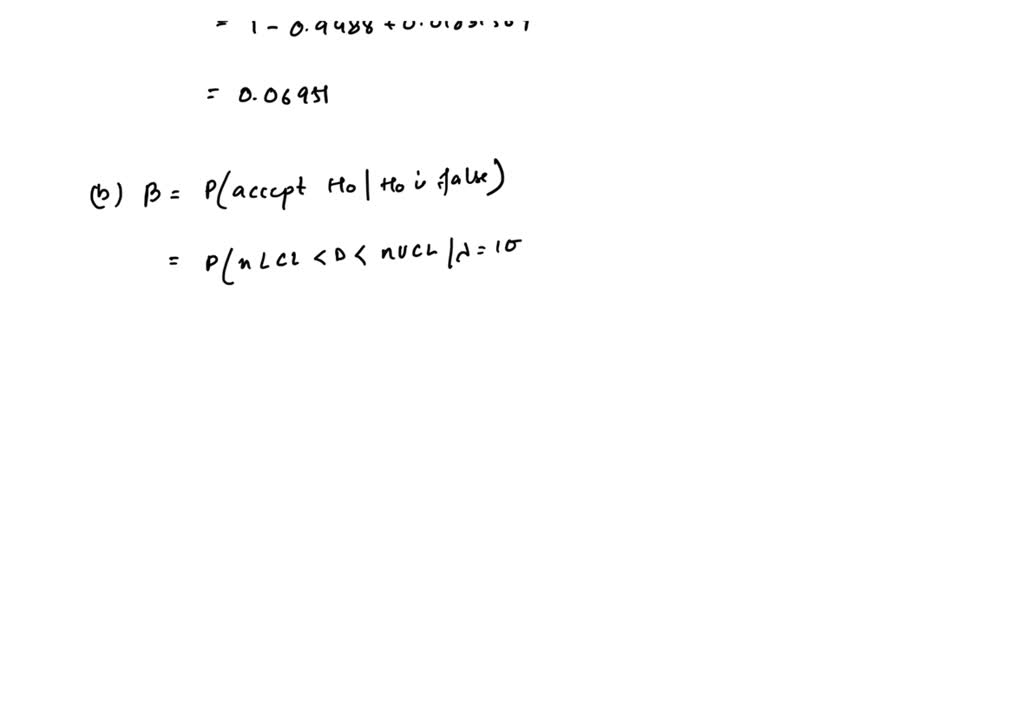 = 1 - 0.9488 +
= 0.06951
(b) β = P(acccpt Ho | Ho is false)
= P(n LCL < D < nUCL | λ = 10